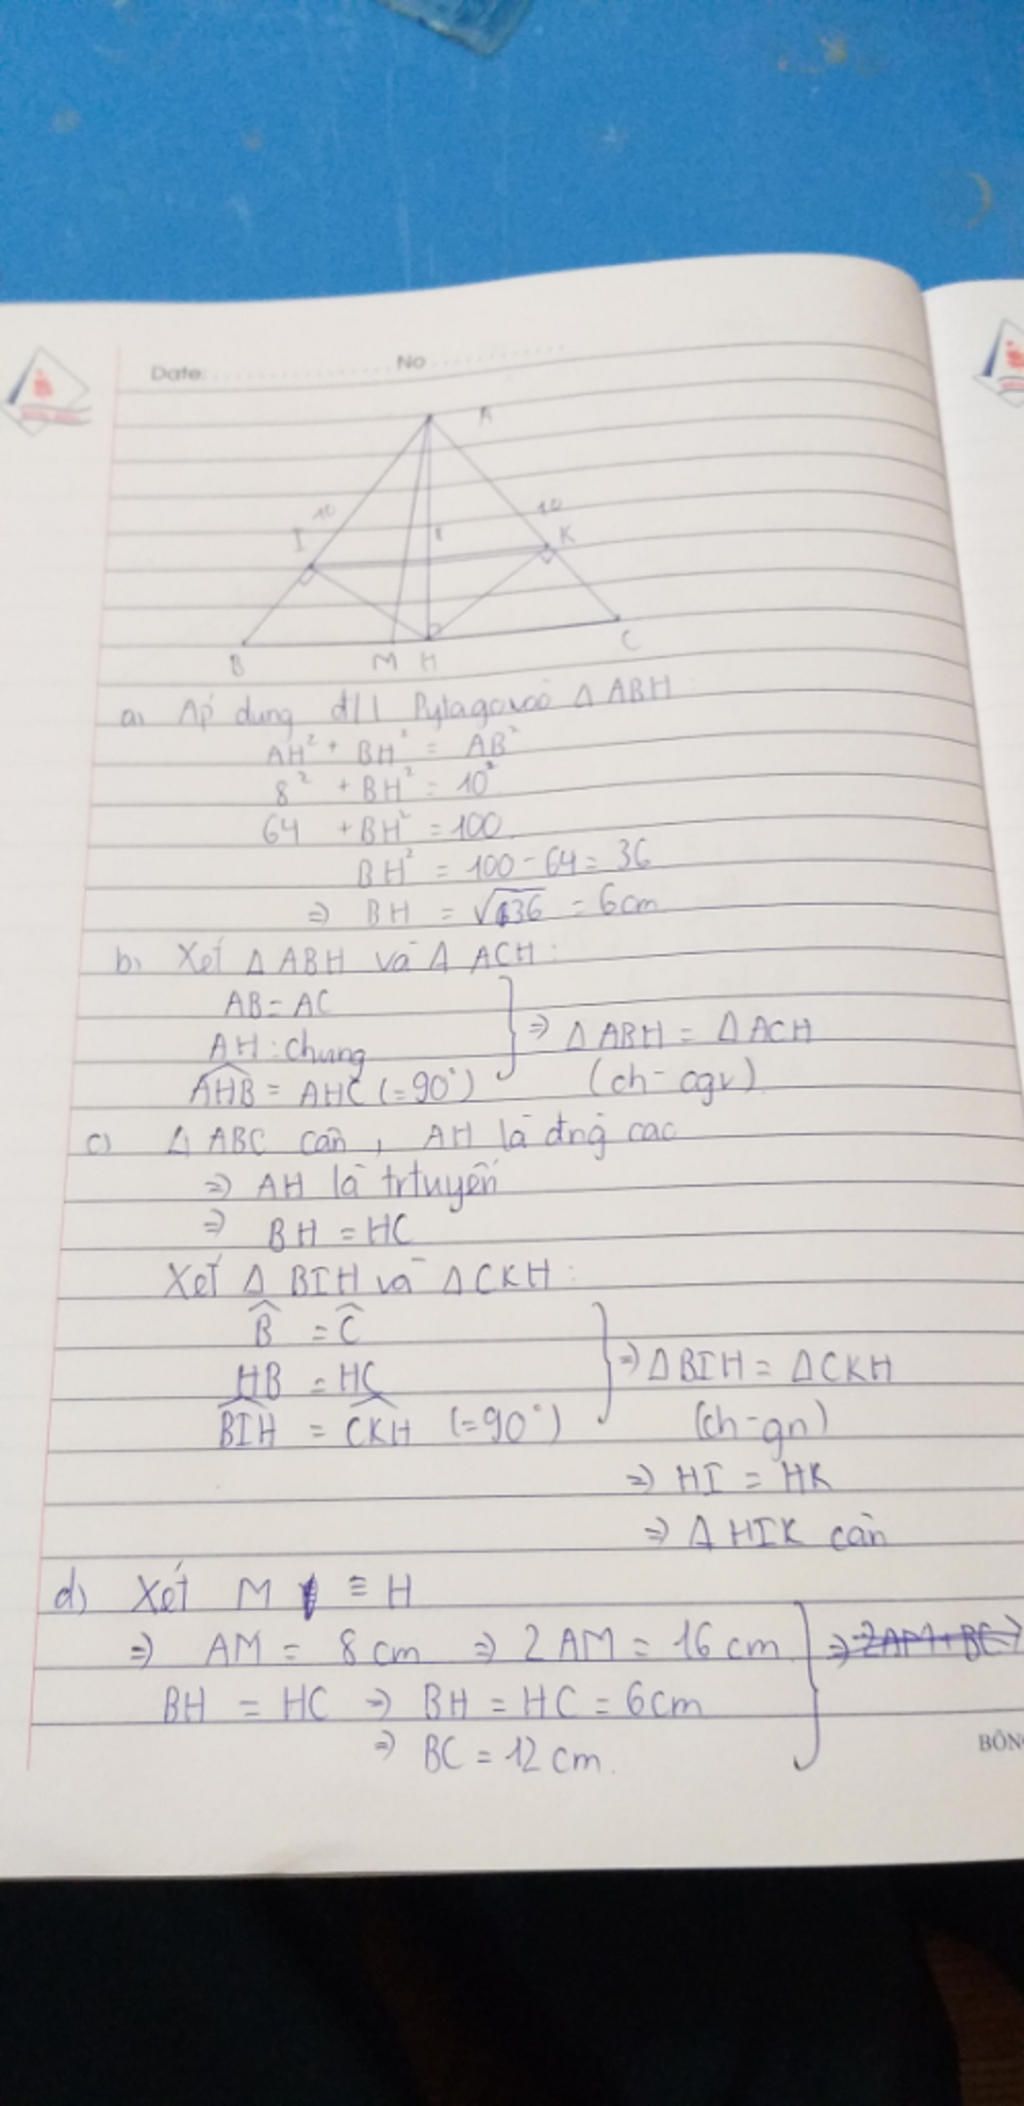 Date: No
A
10
10
I
K
B M H C
a) Áp dụng đ/l Pytago vào Δ ABH:
AH² + BH² = AB²
8² + BH² = 10²
64 + BH² = 100
BH² = 100 - 64 = 36
⇒ BH = √36 = 6cm
b) Xét Δ ABH và Δ ACH:
AB = AC
AH : chung
AHB = AHC (= 90°)
⇒ Δ ABH = Δ ACH
(ch - cgv)
c) Δ ABC cân, AH là đng cao
⇒ AH là trtuyến
⇒ BH = HC
Xét Δ BIH và Δ CKH:
B = C
HB = HC
BIH = CKH (= 90°)
⇒ Δ BIH = Δ CKH
(ch - gn)
⇒ HI = HK
⇒ Δ HIK cân
d) Xét M ≡ H
⇒ AM = 8 cm ⇒ 2 AM = 16 cm
BH = HC ⇒ BH = HC = 6cm
⇒ BC = 12 cm.